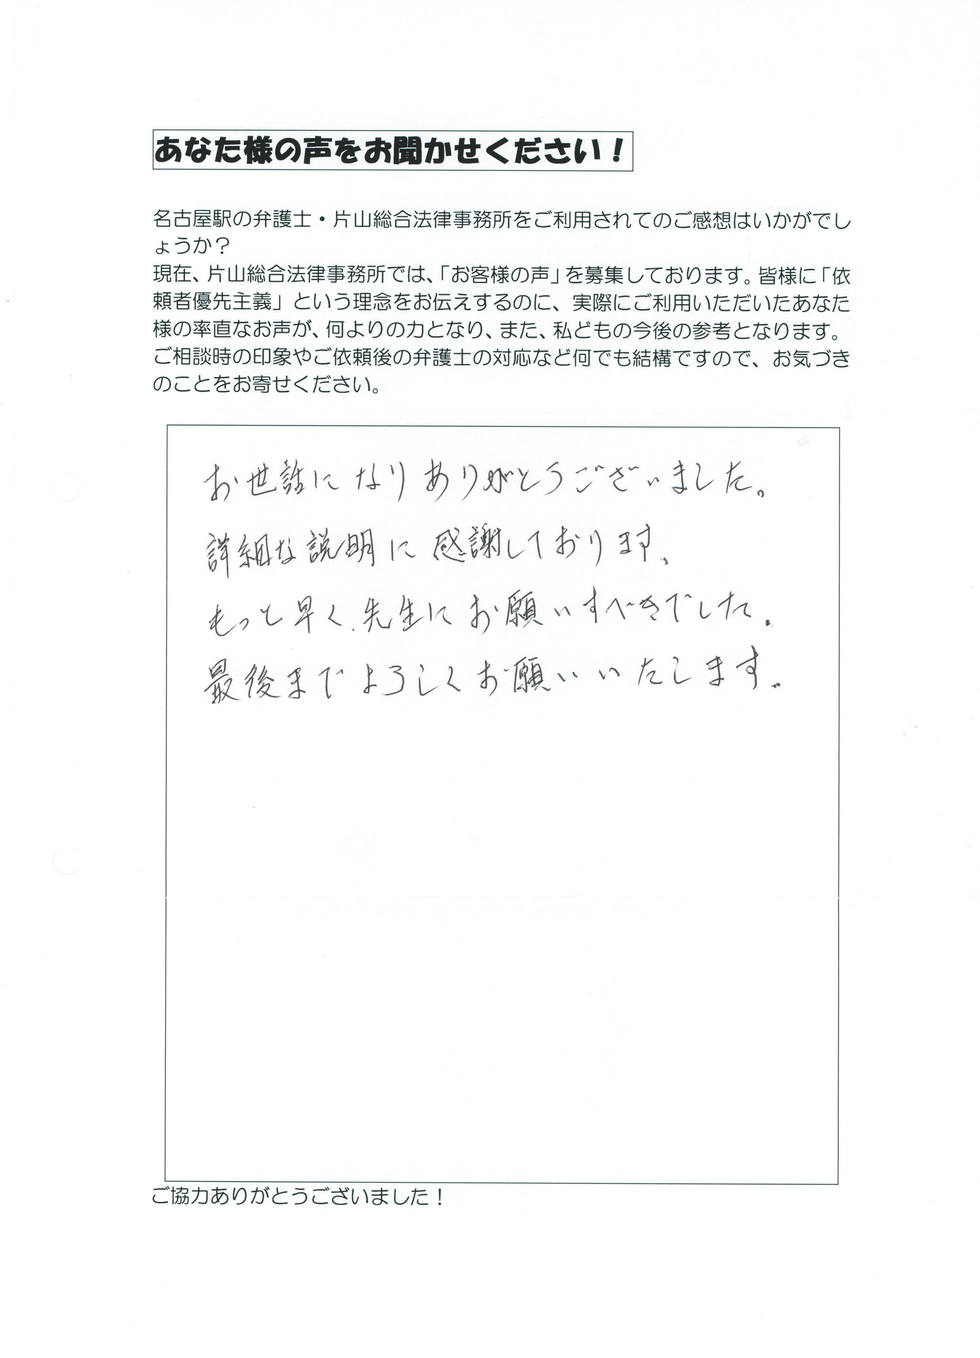 あなた様の声をお聞かせください！
名古屋駅の弁護士・片山総合法律事務所をご利用されてのご感想はいかがでし
ょうか？
現在、片山総合法律事務所では、「お客様の声」を募集しております。皆様に「依
頼者優先主義」という理念をお伝えするのに、実際にご利用いただいたあなた
様の率直なお声が、何よりの力となり、また、私どもの今後の参考となります。
ご相談時の印象やご依頼後の弁護士の対応など何でも結構ですので、お気づき
のことをお寄せください。
お世話になりありがとうございました。
詳細な説明に感謝しております。
もっと早く、先生にお願いすべきでした。
最後までよろしくお願いいたします。
ご協力ありがとうございました！